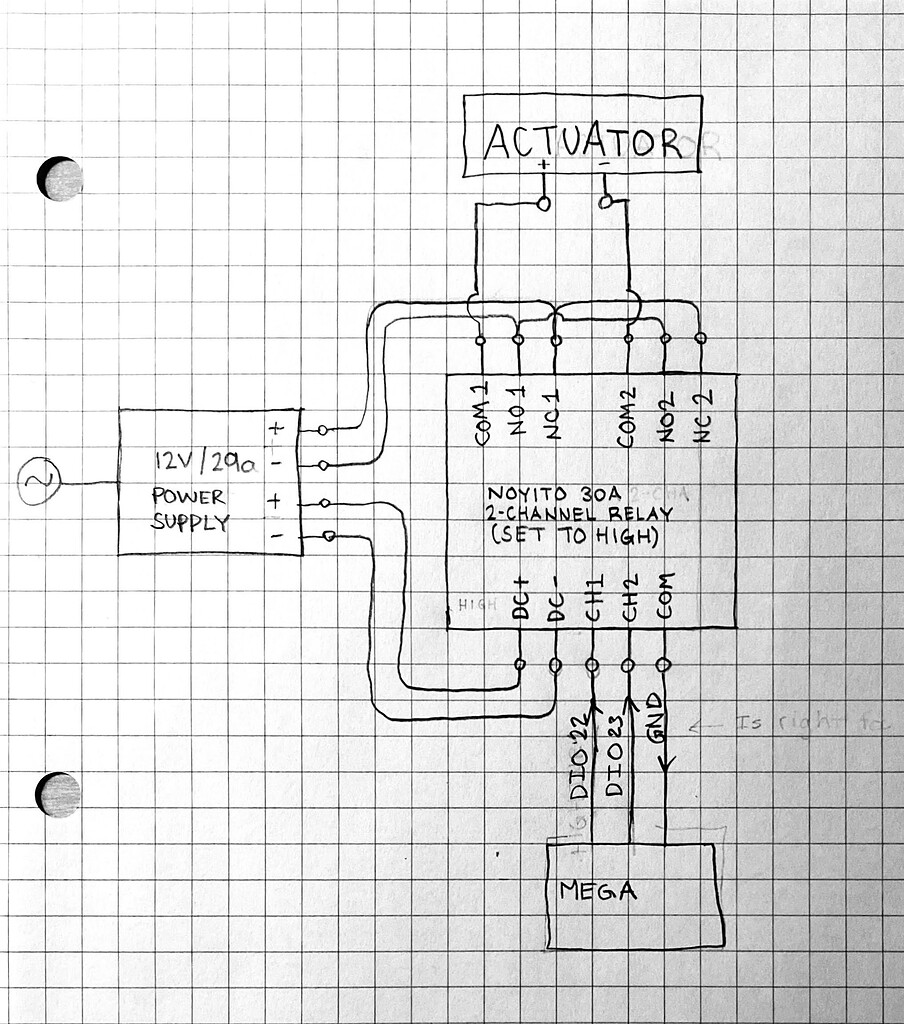 ACTUATOR
+ -
COM1 NO1 NC1 COM2 NO2 NC2
+
12V/29a -
POWER +
SUPPLY -
NOYITO 30A 2-CHA
2-CHANNEL RELAY
(SET TO HIGH)
HIGH DC+ DC- CH1 CH2 COM
DIO 22 DIO 23 GND
← Is right for
MEGA